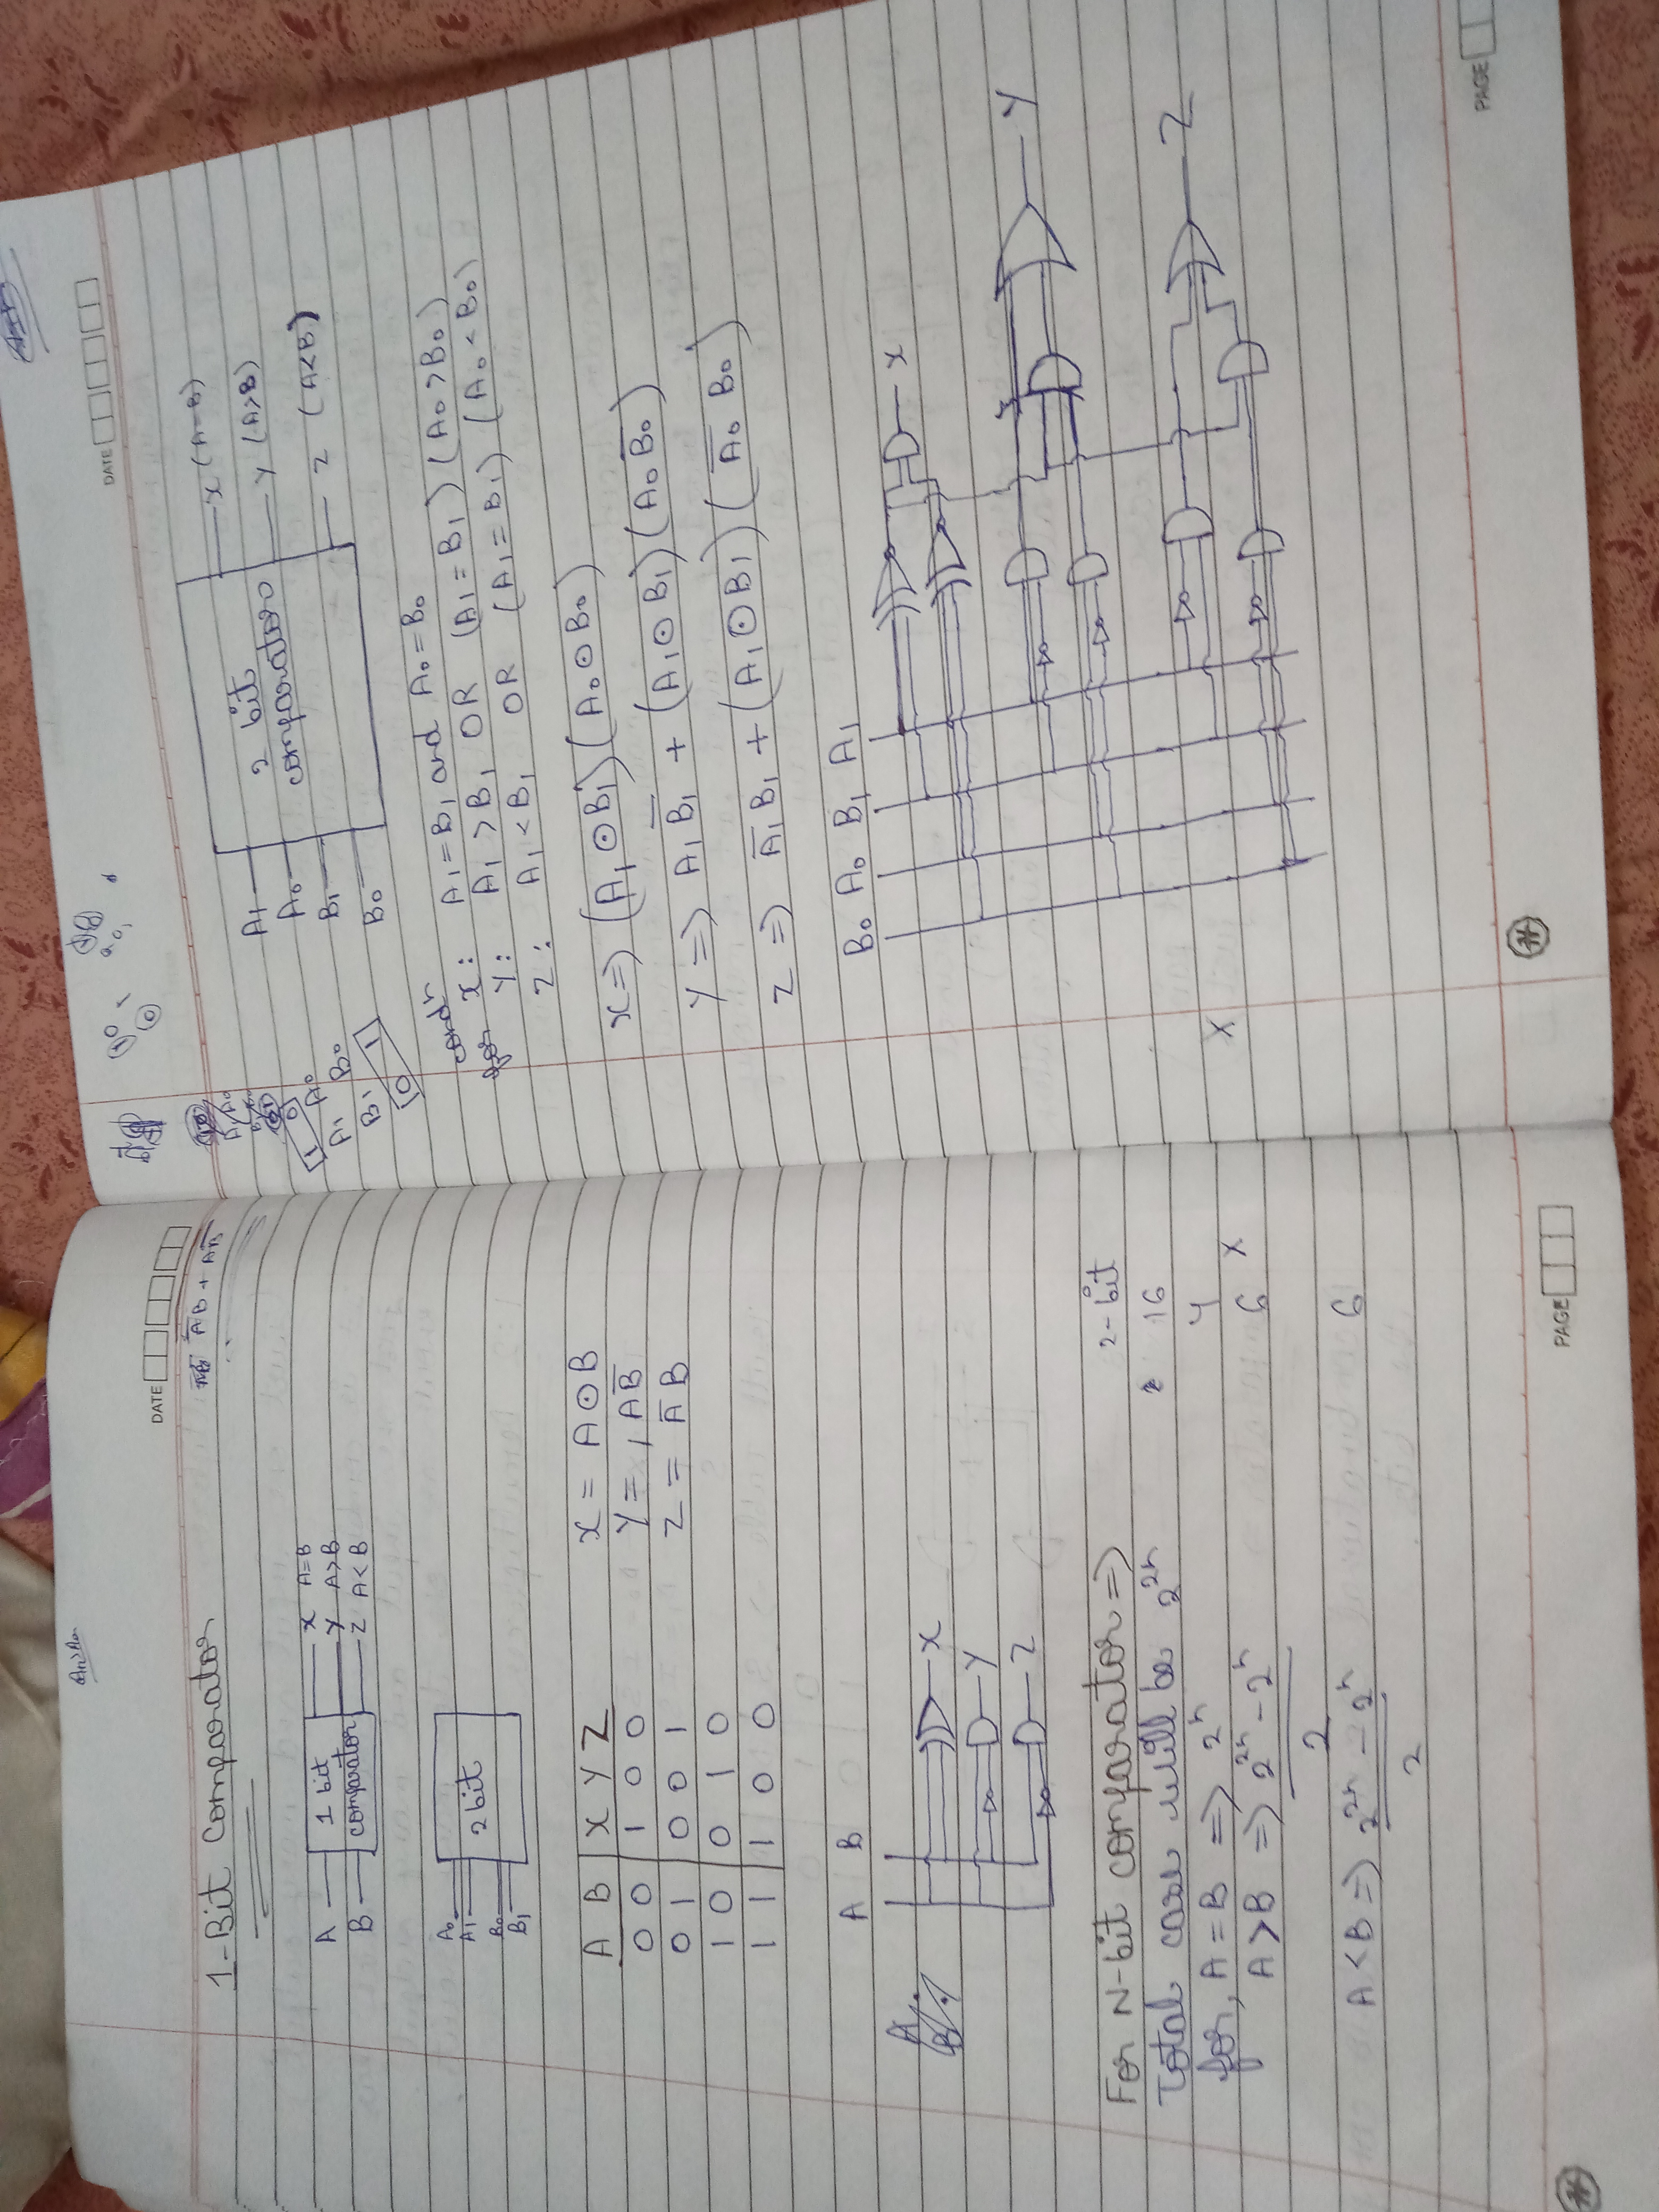 DATE
1-Bit Comparator
A
B
1 bit
comparator
X A=B
Y A>B
Z A<B
A₀
A₁
B₀
B₁
2 bit
A B X Y Z
0 0 1 0 0
0 1 0 0 1
1 0 0 1 0
1 1 1 0 0
X = A⊙B
Y = AB̅
Z = A̅B
A B
X
Y
Z
For N-bit comparator =>
2-bit
Total case will be 2²ⁿ 16
for, A=B => 2ⁿ 4
A>B => (2²ⁿ - 2ⁿ)/2 6 X
A<B => (2²ⁿ - 2ⁿ)/2 6
PAGE
DATE
A₁
A₀
B₁
B₀
2 bit
comparator
X (A=B)
Y (A>B)
Z (A<B)
1 0
A₁ A₀
B₁ B₀
0 1
condⁿ
for
X: A₁=B₁ and A₀=B₀
Y: A₁>B₁ OR (A₁=B₁)(A₀>B₀)
Z: A₁<B₁ OR (A₁=B₁)(A₀<B₀)
X => (A₁⊙B₁)(A₀⊙B₀)
Y => A₁B̅₁ + (A₁⊙B₁)(A₀B̅₀)
Z => A̅₁B₁ + (A₁⊙B₁)(A̅₀B₀)
B₀ A₀ B₁ A₁
X
Y
Z
X
PAGE